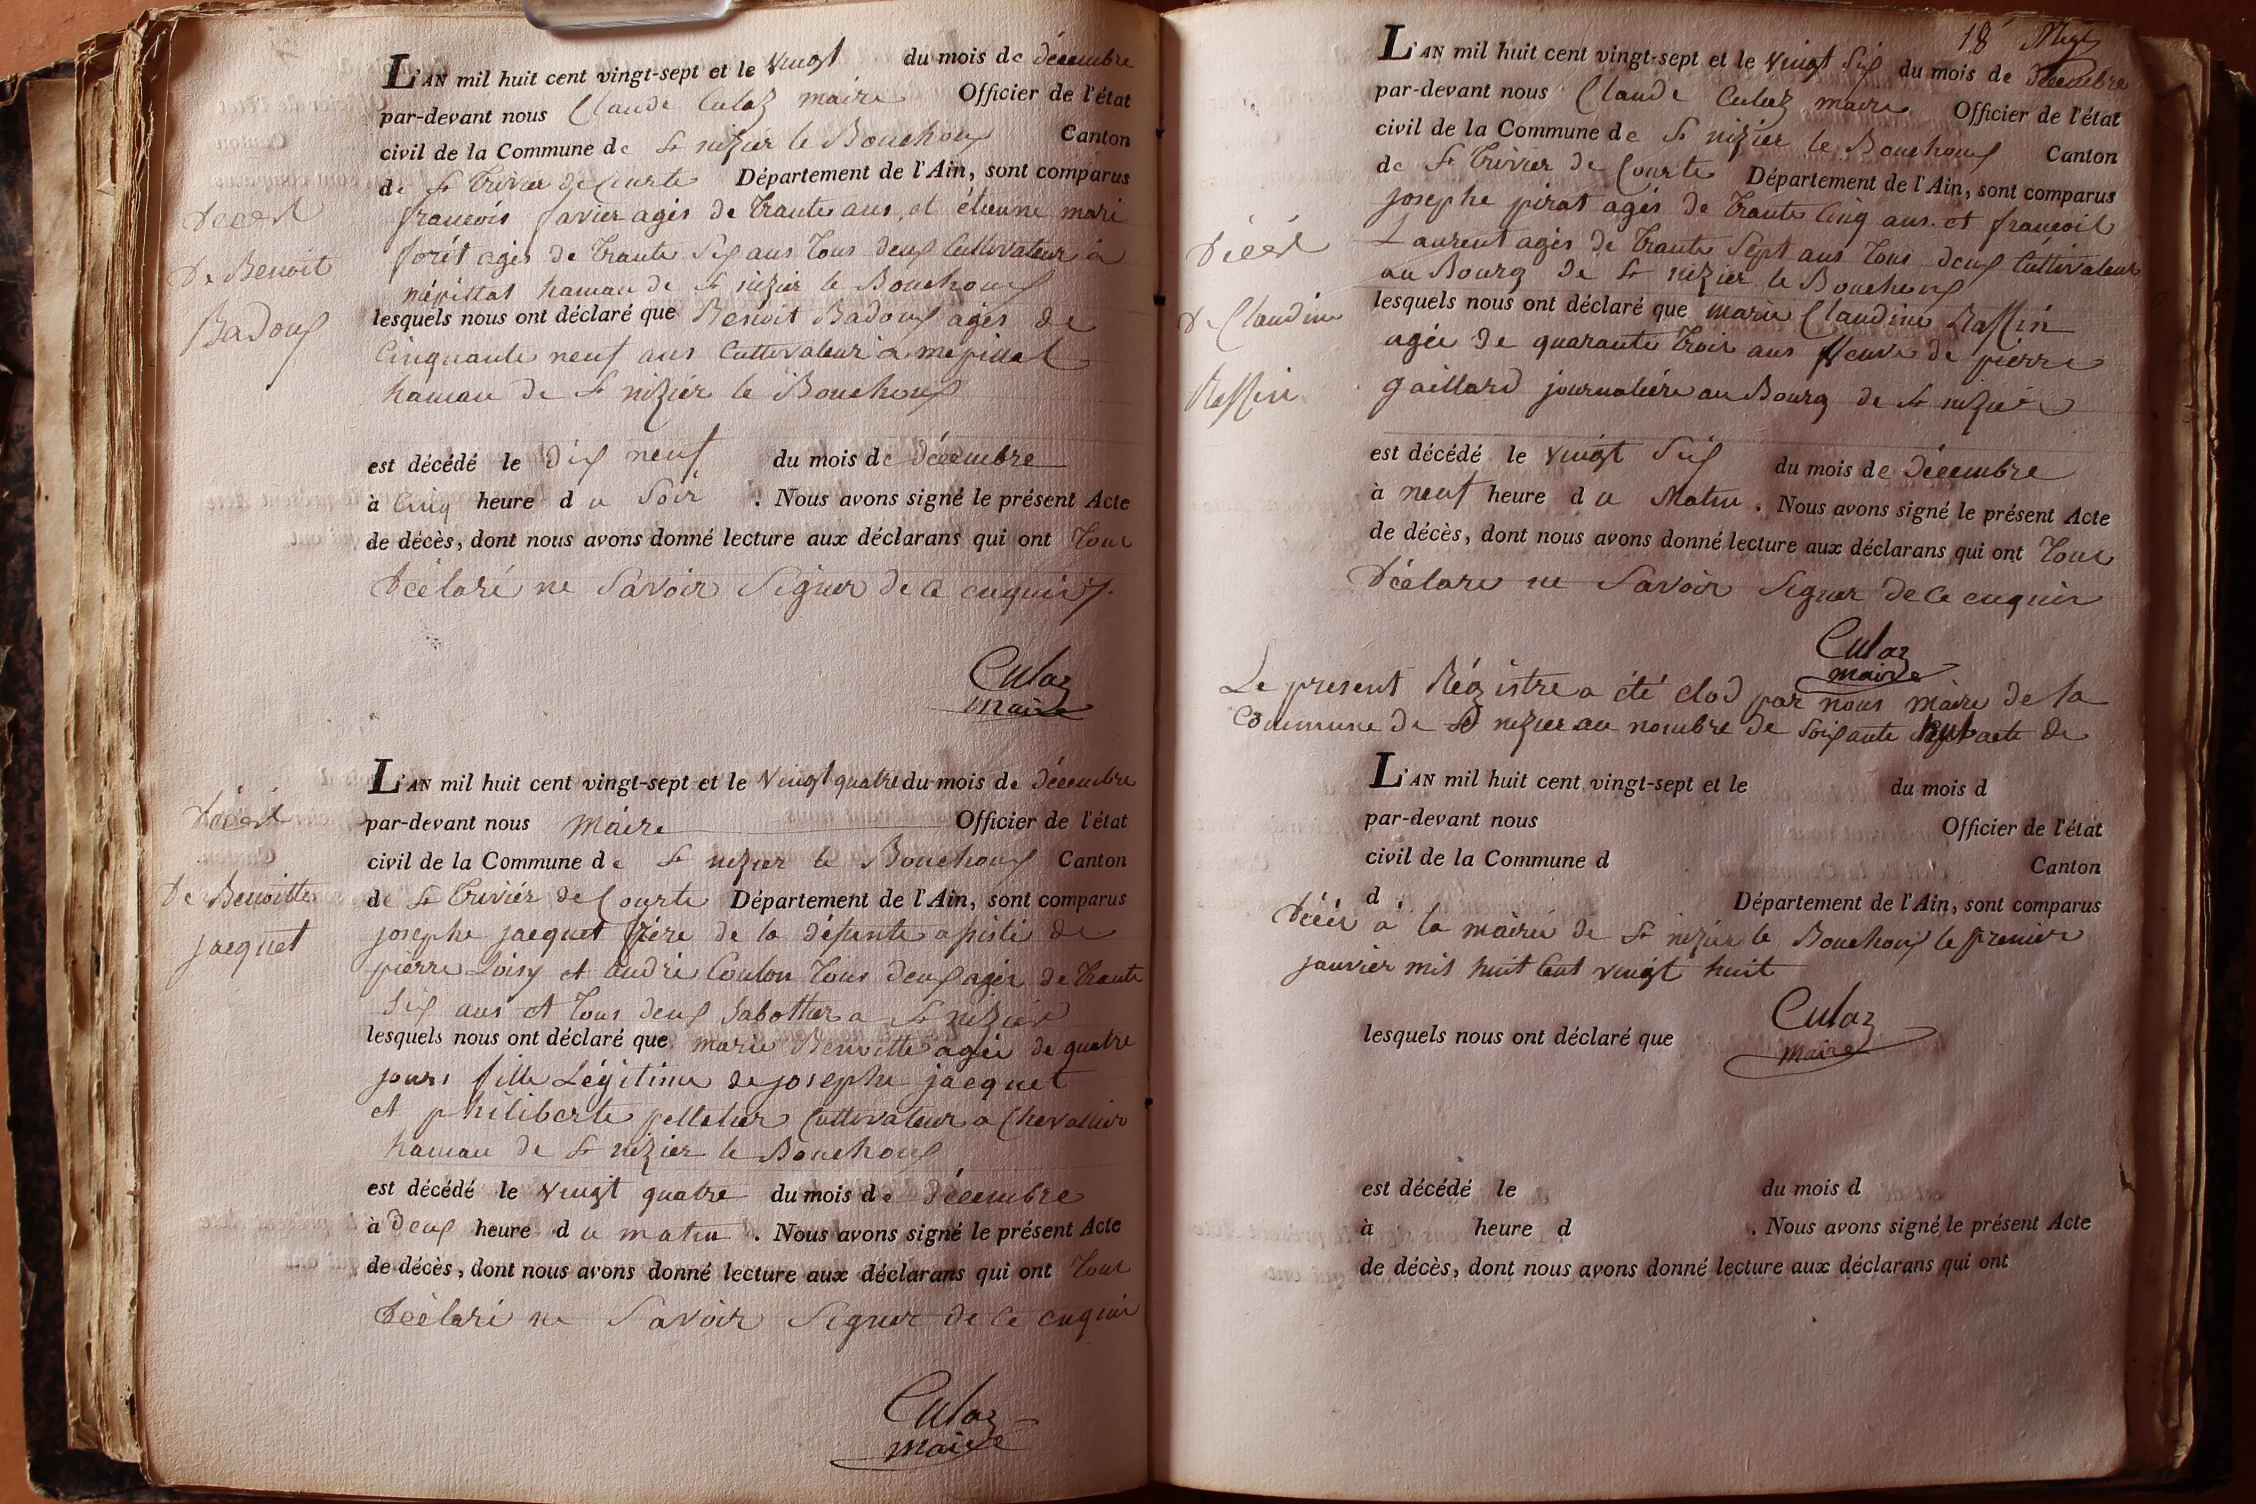 L'AN mil huit cent vingt-sept et le vingt du mois de décembre
par-devant nous Claude Culaz maire Officier de l'état
civil de la Commune de St nizier le Bouchoux Canton
de St Trivier de Courte Département de l'Ain, sont comparus
Décès
de Benoit
Badoux
francois favier agés de trante ans, et étienne mari
forét agés de trante Six ans tous deux Cultivateur a
népittat hamau de St nizier le Bouchoux
lesquels nous ont déclaré que Benoit Badoux agés de
Cinquante neuf ans Cultivateur a mepittat
hamau de St nizier le Bouchoux
est décédé le dix neuf du mois de décembre
à Cinq heure du Soir . Nous avons signé le présent Acte
de décès, dont nous avons donné lecture aux déclarans qui ont tous
Déclaré ne Savoir Signer de ce enquis
Culaz
maire
L'AN mil huit cent vingt-sept et le vingt quatre du mois de décembre
par-devant nous maire Officier de l'état
civil de la Commune de St nizier le Bouchoux Canton
de St Trivier de Courte Département de l'Ain, sont comparus
Décès
de Benoitte
jacquet
josephe jacquet frére de la défunte a pisté de
pierre Loisy et andré Coulon tous deux agés de trante
Six ans et tous deux Sabottier a St nizier
lesquels nous ont déclaré que marie Benoitte agée de quatre
jours fille Légitime de josephe jacquet
et philiberte pelletier Cultivateur a Chevallier
hamau de St nizier le Bouchoux
est décédé le vingt quatre du mois de décembre
à deux heure du matin . Nous avons signé le présent Acte
de décès, dont nous avons donné lecture aux déclarans qui ont tous
Déclaré ne Savoir Signer de ce enquis
Culaz
maire
18
L'AN mil huit cent vingt-sept et le vingt Six du mois de décembre
par-devant nous Claude Culaz maire Officier de l'état
civil de la Commune de St nizier le Bouchoux Canton
de St Trivier de Courte Département de l'Ain, sont comparus
Décès
de Claudine
Raffin
josephe pirat agés de trante Cinq ans et francois
Laurent agés de trante Sept ans tous deux Cultivateur
au Bourg de St nizier le Bouchoux
lesquels nous ont déclaré que marie Claudine Raffin
agée de quarante trois ans Veuve de pierre
gaillard journaliére au Bourg de St nizier
est décédé le vingt Six du mois de décembre
à neuf heure du Matin . Nous avons signé le présent Acte
de décès, dont nous avons donné lecture aux déclarans qui ont tous
Déclaré ne Savoir Signer de ce enquis
Culaz
maire
Le present Régistre a été clod par nous maire de la
Commune de St nizier au nombre de Soixante acte de
L'AN mil huit cent vingt-sept et le du mois d
par-devant nous Officier de l'état
civil de la Commune d Canton
d Département de l'Ain, sont comparus
Décès a la mairie de St nizier le Bouchoux le premier
janvier mil huit Cent vingt huit
Culaz
maire
lesquels nous ont déclaré que
est décédé le du mois d
à heure d . Nous avons signé le présent Acte
de décès, dont nous avons donné lecture aux déclarans qui ont